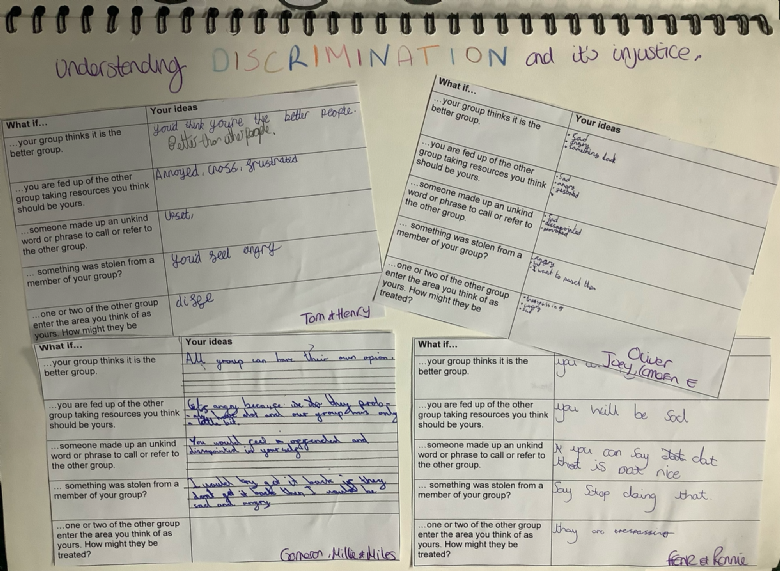 Understanding DISCRIMINATION and its injustice.
What if...
Your ideas
...your group thinks it is the
better group.
you'd think you're the better people.
Better than other people.
...you are fed up of the other
group taking resources you think
should be yours.
Annoyed, cross, frustrated
...someone made up an unkind
word or phrase to call or refer to
the other group.
Upset,
... something was stolen from a
member of your group?
you'd feel angry
...one or two of the other group
enter the area you think of as
yours. How might they be
Tom & Henry
What if...
Your ideas
...your group thinks it is the
better group.
• Sad
• angry
...you are fed up of the other
group taking resources you think
should be yours.
• Sad
• angry
...someone made up an unkind
word or phrase to call or refer to
the other group.
• Sad
... something was stolen from a
member of your group?
• angry
...one or two of the other group
enter the area you think of as
yours. How might they be
treated?
Oliver
Joey
What if...
Your ideas
...your group thinks it is the
better group.
All group can have their own opinion.
...you are fed up of the other
group taking resources you think
should be yours.
angry because
and our group only
...someone made up an unkind
word or phrase to call or refer to
the other group.
You would feel offended and
... something was stolen from a
member of your group?
I would get it back if they
don't get it back then I would be
sad and angry
...one or two of the other group
enter the area you think of as
yours. How might they be
treated?
Cameron, Millie & Miles
What if...
...your group thinks it is the
better group.
you
...you are fed up of the other
group taking resources you think
should be yours.
you will be sad
...someone made up an unkind
word or phrase to call or refer to
the other group.
you can say
that is not nice
... something was stolen from a
member of your group?
Say Stop doing that
...one or two of the other group
enter the area you think of as
yours. How might they be
treated?
they are
& Ronnie